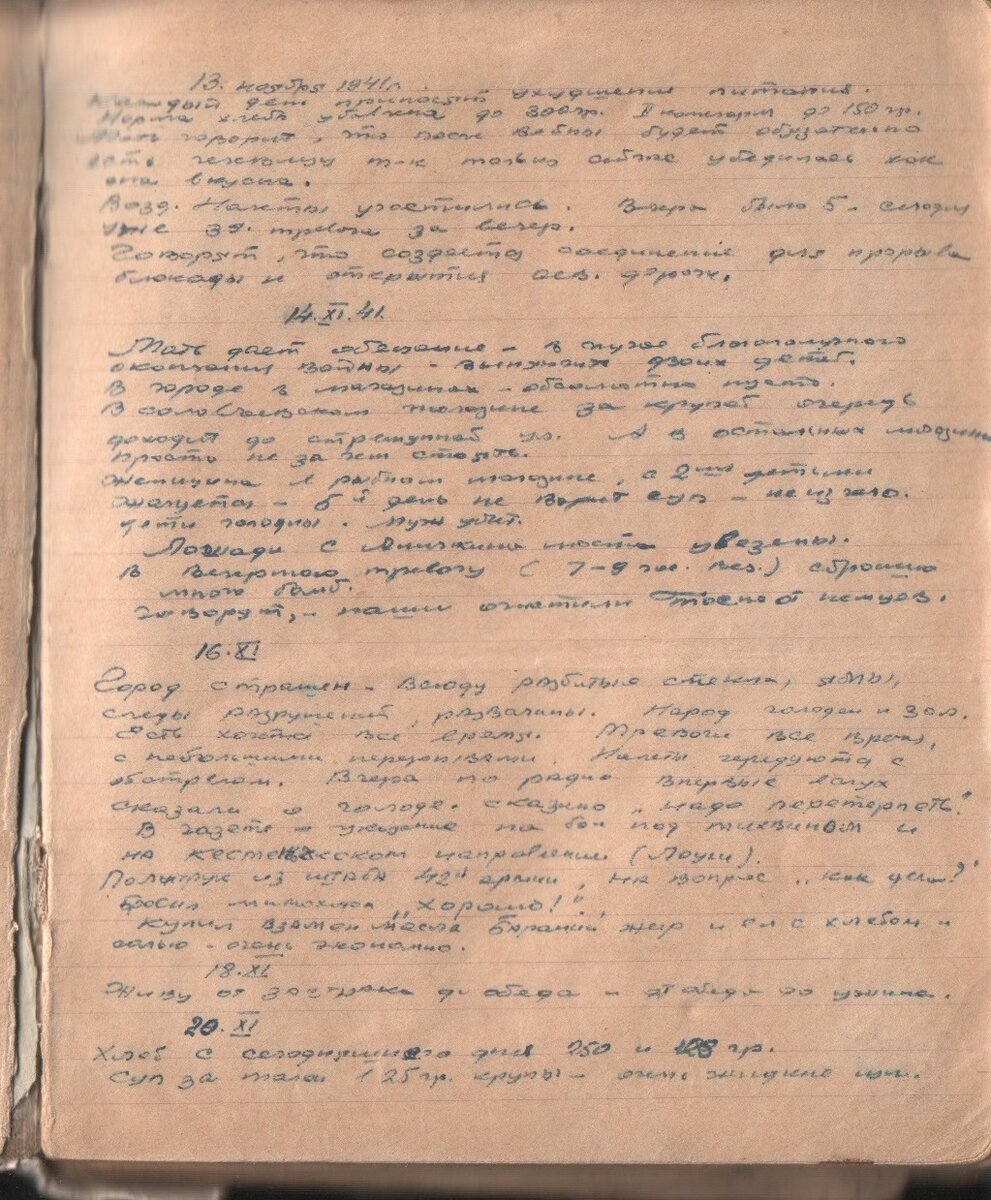 13. ноября 1941 г.
Каждый день приносит ухудшения питания.
Норма хлеба убавлена до 300 гр. II категории до 150 гр.
Мать говорит, что после войны будет обязательно
есть чечевицу т-к только сейчас убедилась как
она вкусна.
Возд. Налеты участились. Вчера было 5 - сегодня
уже 3я тревога за вечер.
Говорят, что создается соединение для прорыва
блокады и открытия дороги.
14.XI.41.
Мать дает обещание - в случае благополучного
окончания войны - двоих детей.
В городе в магазинах - абсолютно пусто.
В соловьевском магазине за крупой очередь
доходит до стремянной ул. А в остальных магазинах
просто не за чем стоять.
Женщина в рыбном магазине, с 2мя детьми
Жалуется - 6й день не варит суп - не из чего.
Дети голодны. Муж убит.
Лошади с Аничкина моста увезены.
В Вечернюю тревогу (7-9 час. веч.) сбросили
много бомб.
Говорят, - наши очистили Тосно от немцев.
16.XI
Город страшен - Всюду разбитые стекла, ямы,
следы разрушений, развалины. Народ голоден и зол.
Есть хочется все время. Тревоги все время,
с небольшими перерывами. Налеты чередуются с
обстрелом. Вчера по радио впервые вслух
сказали о голоде. сказано „надо перетерпеть".
В газете - указание на бои под тихвином и
на кестеньгском направлении (Лоухи).
Политрук из штаба 42й армии, на вопрос „как дела?"
бросил мимоходом „хорошо!"
Купил взамен масла Бараний жир и ел с хлебом и
солью - очень экономно.
18.XI
Живу от завтрака до обеда - от обеда до ужина.
20.XI
Хлеб с сегодняшнего дня 250 и 125 гр.
Суп за талон в 25 гр. крупы - очень жидкие щи.